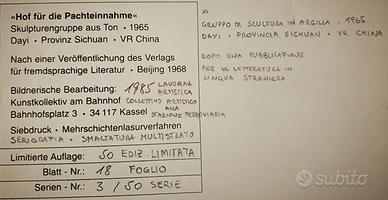 »Hof für die Pachteinnahme«
Skulpturengruppe aus Ton • 1965
Dayi • Provinz Sichuan • VR China
Nach einer Veröffentlichung des Verlags
für fremdsprachige Literatur • Beijing 1968
Bildnerische Bearbeitung: 1985 LAVORAZ. ARTISTICA
Kunstkollektiv am Bahnhof COLLETTIVO ARTISTICO ALLA
Bahnhofsplatz 3 • 34 117 Kassel STAZIONE FERROVIARIA
Siebdruck • Mehrschichtenlasurverfahren
SERIGRAFIA • SMALTATURA MULTISTRATO
Limitierte Auflage: 50 EDIZ. LIMITATA
Blatt - Nr.: 18 FOGLIO
Serien - Nr.: 3 / 50 SERIE
»
GRUPPO DI SCULTURA IN ARGILLA • 1965
DAYI • PROVINCIA SICHUAN • VR CHINA
DOPO UNA PUBBLICAZIONE
PER LA LETTERATURA IN
LINGUA STRANIERA
subito